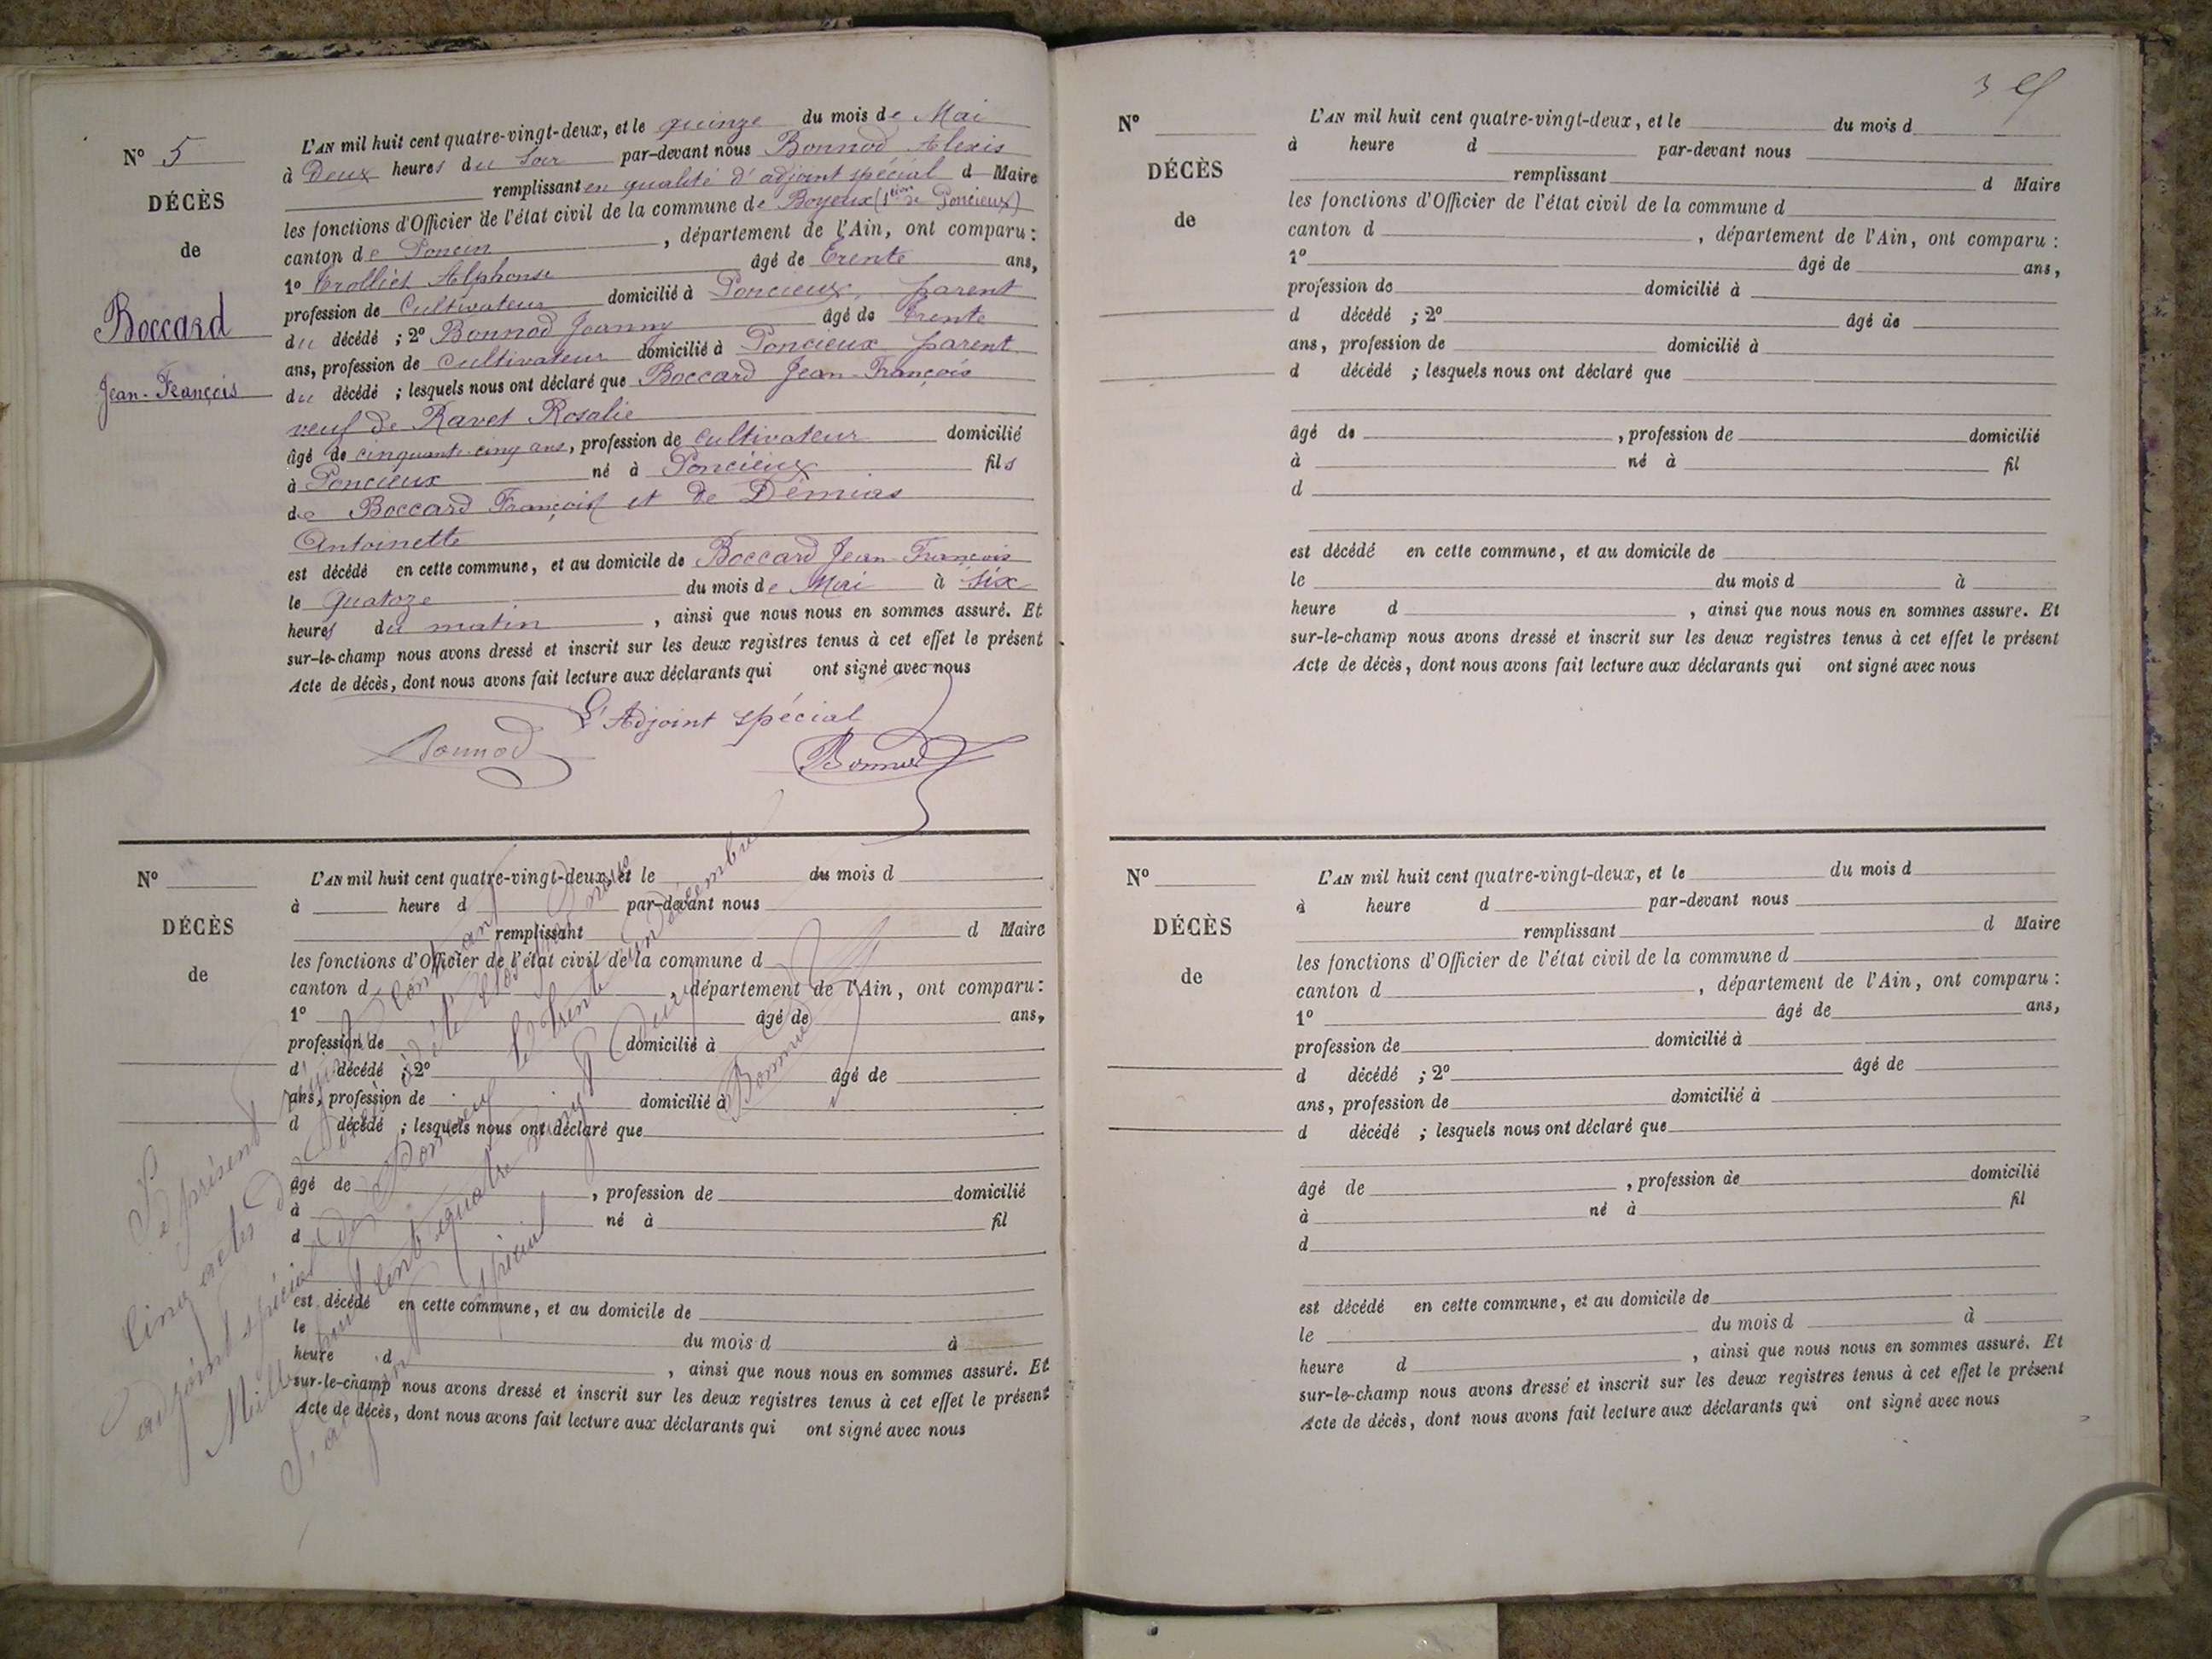 N° 5
DÉCÈS
de
Boccard
Jean-François
L'AN mil huit cent quatre-vingt-deux, et le quinze du mois de Mai
à Deux heures du soir par-devant nous Bonnod Alexis
remplissant en qualité d'adjoint spécial d Maire
les fonctions d'Officier de l'état civil de la commune de Boyeux (Son de Poncieux)
canton de Poncin, département de l'Ain, ont comparu :
1° Trolliet Alphonse âgé de trente ans,
profession de Cultivateur domicilié à Poncieux, parent
du décédé ; 2° Bonnod Joanny âgé de trente
ans, profession de cultivateur domicilié à Poncieux parent
du décédé ; lesquels nous ont déclaré que Boccard Jean-François
veuf de Ravet Rosalie
âgé de cinquante-cinq ans, profession de cultivateur domicilié
à Poncieux né à Poncieux fils
de Boccard François et de Démias
Antoinette
est décédé en cette commune, et au domicile de Boccard Jean-François
le quatoze du mois de Mai à six
heures du matin, ainsi que nous nous en sommes assuré. Et
sur-le-champ nous avons dressé et inscrit sur les deux registres tenus à cet effet le présent
Acte de décès, dont nous avons fait lecture aux déclarants qui ont signé avec nous
L'Adjoint spécial
Bonnod
Bonnod
N°
DÉCÈS
de
L'AN mil huit cent quatre-vingt-deux, et le du mois d
à heure d par-devant nous
remplissant d Maire
les fonctions d'Officier de l'état civil de la commune d
canton d , département de l'Ain, ont comparu :
1° âgé de ans,
profession de domicilié à
d décédé ; 2° âgé de
ans, profession de domicilié à
d décédé ; lesquels nous ont déclaré que
âgé de , profession de domicilié
à né à fil
d
est décédé en cette commune, et au domicile de
le du mois d à
heure d , ainsi que nous nous en sommes assuré. Et
sur-le-champ nous avons dressé et inscrit sur les deux registres tenus à cet effet le présent
Acte de décès, dont nous avons fait lecture aux déclarants qui ont signé avec nous
Le présent contenant
Cinq actes de décès a été clos par nous
adjoint spécial de Poncieux le trente un décembre
Mille huit cent quatre vingt deux
L'adjoint spécial
Bonnod
3
N°
DÉCÈS
de
L'AN mil huit cent quatre-vingt-deux, et le du mois d
à heure d par-devant nous
remplissant d Maire
les fonctions d'Officier de l'état civil de la commune d
canton d , département de l'Ain, ont comparu :
1° âgé de ans,
profession de domicilié à
d décédé ; 2° âgé de
ans, profession de domicilié à
d décédé ; lesquels nous ont déclaré que
âgé de , profession de domicilié
à né à fil
d
est décédé en cette commune, et au domicile de
le du mois d à
heure d , ainsi que nous nous en sommes assure. Et
sur-le-champ nous avons dressé et inscrit sur les deux registres tenus à cet effet le présent
Acte de décès, dont nous avons fait lecture aux déclarants qui ont signé avec nous
N°
DÉCÈS
de
L'AN mil huit cent quatre-vingt-deux, et le du mois d
à heure d par-devant nous
remplissant d Maire
les fonctions d'Officier de l'état civil de la commune d
canton d , département de l'Ain, ont comparu :
1° âgé de ans,
profession de domicilié à
d décédé ; 2° âgé de
ans, profession de domicilié à
d décédé ; lesquels nous ont déclaré que
âgé de , profession de domicilié
à né à fil
d
est décédé en cette commune, et au domicile de
le du mois d à
heure d , ainsi que nous nous en sommes assuré. Et
sur-le-champ nous avons dressé et inscrit sur les deux registres tenus à cet effet le présent
Acte de décès, dont nous avons fait lecture aux déclarants qui ont signé avec nous